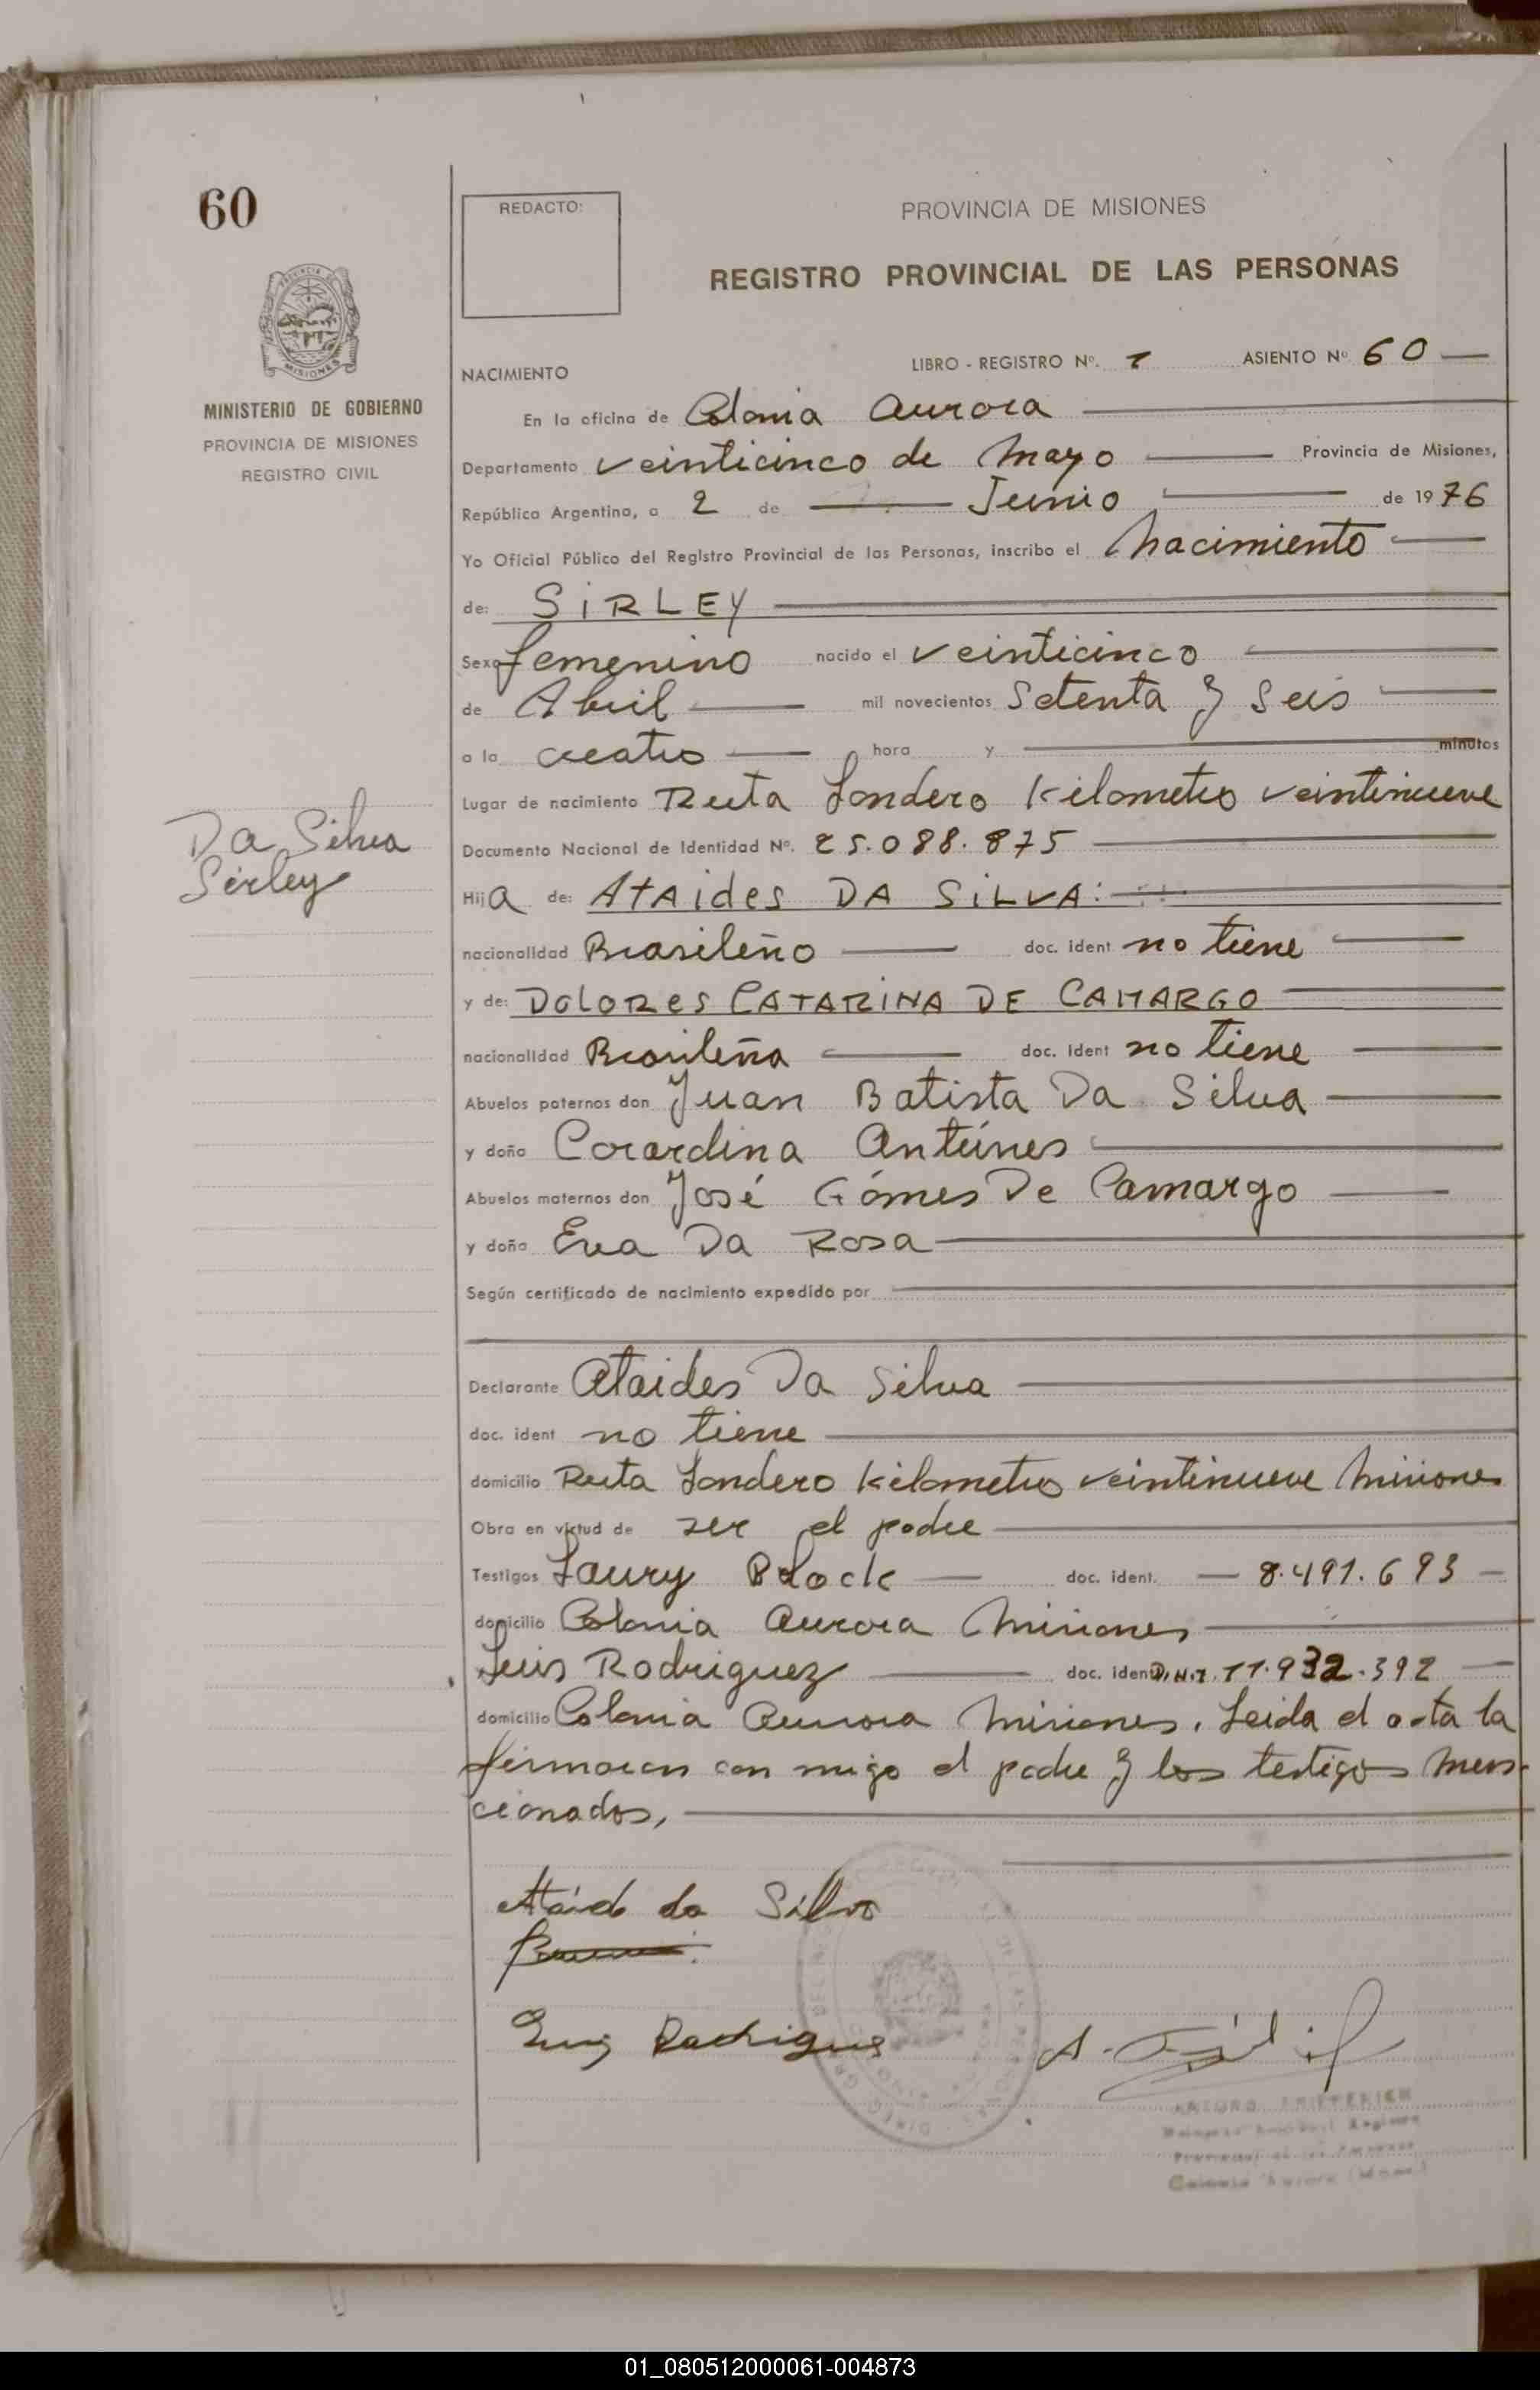 60
REDACTO:
PROVINCIA DE MISIONES
REGISTRO PROVINCIAL DE LAS PERSONAS
MISIONES
MINISTERIO DE GOBIERNO
PROVINCIA DE MISIONES
REGISTRO CIVIL
NACIMIENTO
LIBRO - REGISTRO Nº. 1 ASIENTO Nº 60
En la oficina de Colonia Aurora
Departamento veinticinco de Mayo Provincia de Misiones,
República Argentina, a 2 de Junio de 1976
Yo Oficial Público del Registro Provincial de las Personas, inscribo el Nacimiento
de: SIRLEY
Sexo femenino nacido el veinticinco
de Abril mil novecientos Setenta y Seis
a la cuatro hora y minutos
Lugar de nacimiento Ruta Londero Kilometro veintinueve
Documento Nacional de Identidad Nº. 25.088.875
Da Silva
Sirley
Hija de: ATAIdES DA SILVA:
nacionalidad Brasileño doc. ident no tiene
y de: DOLORES CATARINA DE CAMARGO
nacionalidad Brasileña doc. ident no tiene
Abuelos paternos don Juan Batista Da Silva
y doña Corardina Antúnes
Abuelos maternos don José Gómes De Camargo
y doña Eva Da Rosa
Según certificado de nacimiento expedido por
Declarante Ataides Da Silva
doc. ident no tiene
domicilio Ruta Londero Kilometro veintinueve Misiones
Obra en virtud de ser el padre
Testigos Laury Block doc. ident. 8.491.693
domicilio Colonia Aurora Misiones
Luis Rodriguez doc. ident D.N.I. 11.932.392
domicilio Colonia Aurora Misiones. Leida el acta la
firmaron con migo el padre y los testigos men-
cionados,
Ataíd da Silva
Luis Rodrigues
Colonia Aurora (Mnes.)
01_080512000061-004873